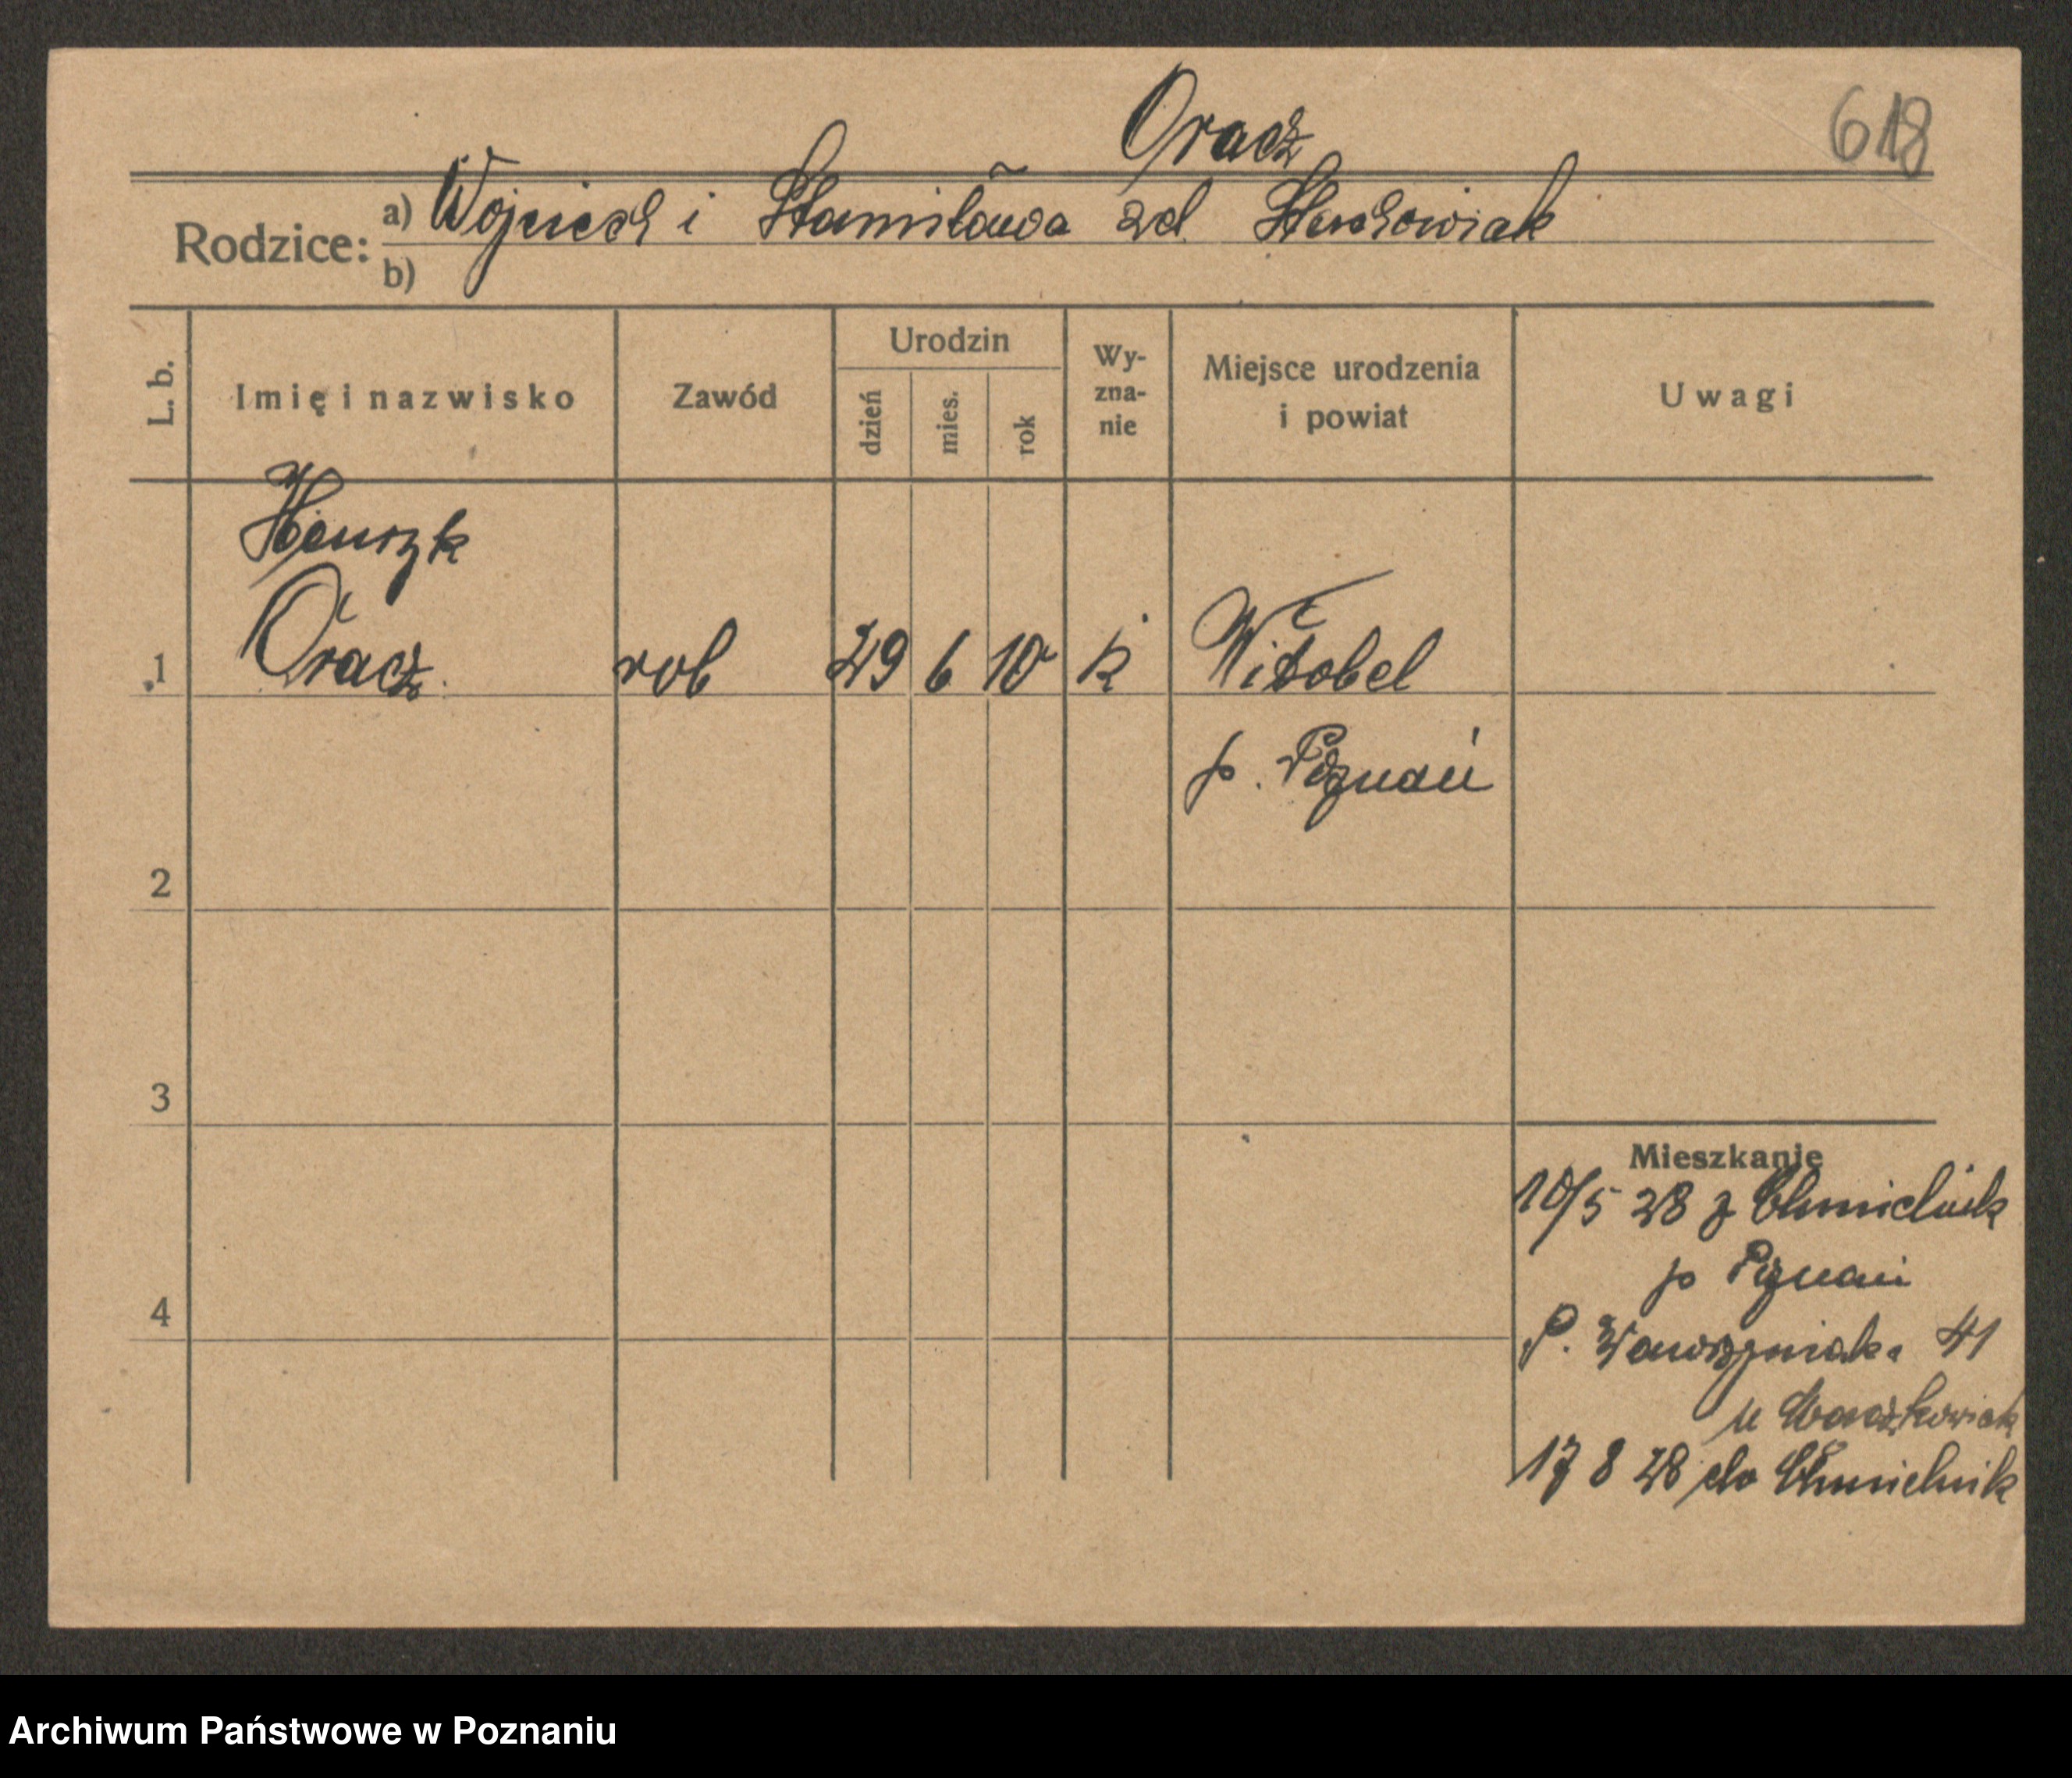 Oracz
618
Rodzice: a) Wojciech i Stanisława zd
b)
L. b. Imię i nazwisko Zawód Urodzin dzień mies. rok Wy-zna-nie Miejsce urodzenia i powiat Uwagi
Henryk
1 Oracz rob 29 6 10 k Witobel
p. Poznań
2
3
Mieszkanie
10/5 28 z Chmielnik
p Poznań
4
P. Wawrzyniaka 41
u
17 8 28 do Chmielnik
Archiwum Państwowe w Poznaniu